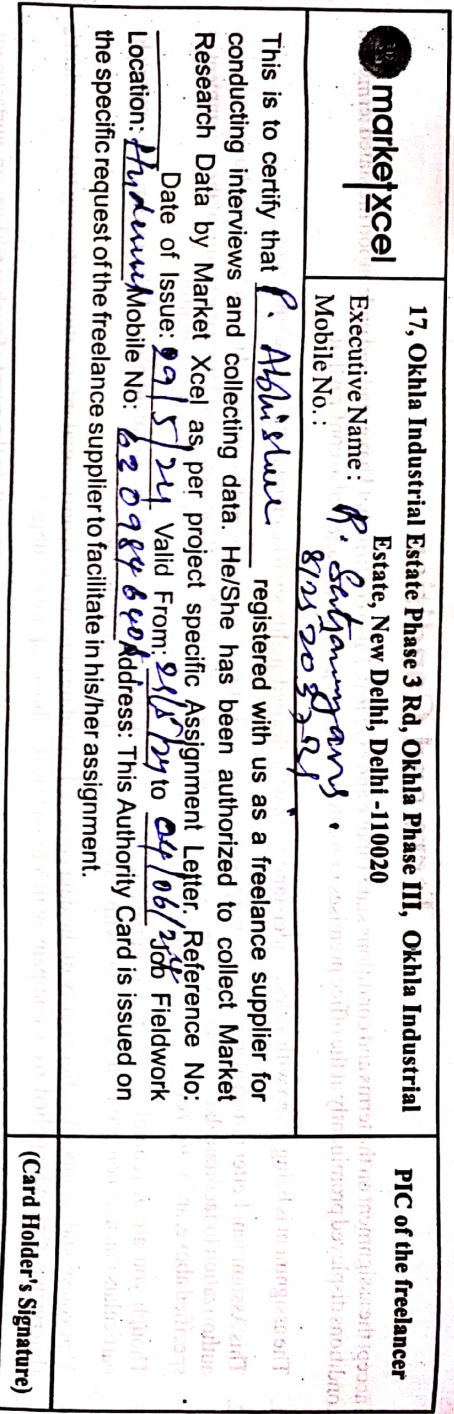 marketxcel
17, Okhla Industrial Estate Phase 3 Rd, Okhla Phase III, Okhla Industrial
Estate, New Delhi, Delhi -110020
Executive Name : R.
Mobile No.:
PIC of the freelancer
This is to certify that P. registered with us as a freelance supplier for
conducting interviews and collecting data. He/She has been authorized to collect Market
Research Data by Market Xcel as per project specific Assignment Letter. Reference No:
Date of Issue: 29/5/24 Valid From: to 04/06/24 Job Fieldwork
Location: Mobile No: Address: This Authority Card is issued on
the specific request of the freelance supplier to facilitate in his/her assignment.
(Card Holder's Signature)